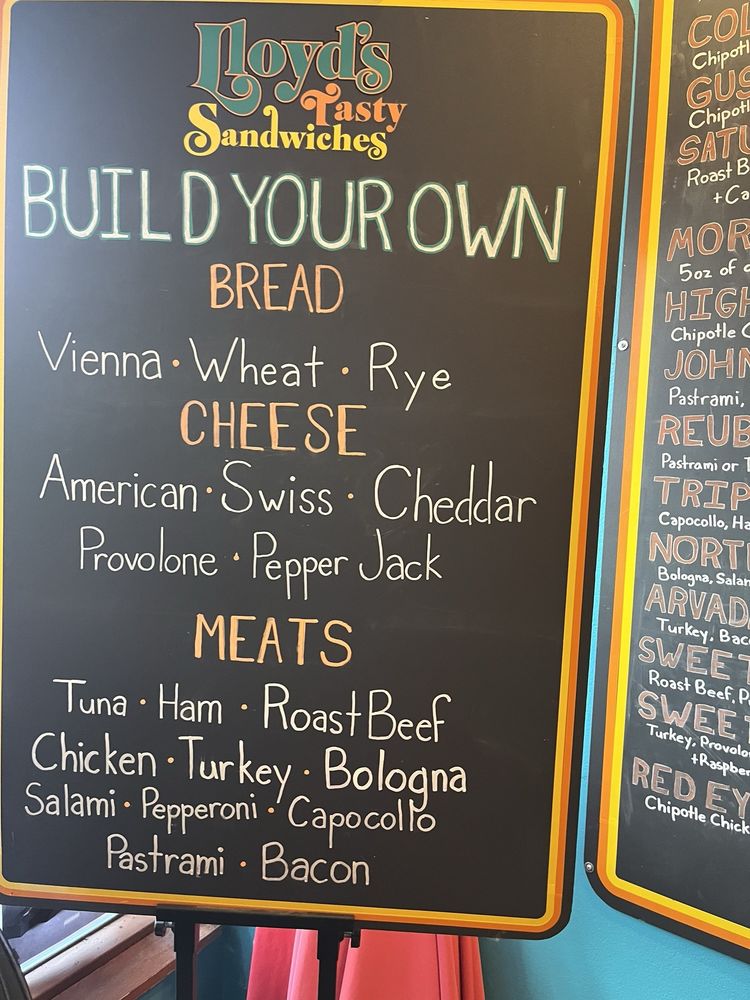 Lloyd's
Tasty
Sandwiches
BUILD YOUR OWN
BREAD
Vienna · Wheat · Rye
CHEESE
American · Swiss · Cheddar
Provolone · Pepper Jack
MEATS
Tuna · Ham · Roast Beef
Chicken · Turkey · Bologna
Salami · Pepperoni · Capocollo
Pastrami · Bacon
Roast B
+Ca
5oz of
Chipotle C
Pastrami,
REUB
Pastrami or T
TRIP
Capocollo, Ha
NORT
Bologna, Salam
ARVAD
Turkey, Baco
SWEET
Roast Beef, P
SWEET
Turkey, Provolo
+Raspber
RED EY
Chipotle Chick